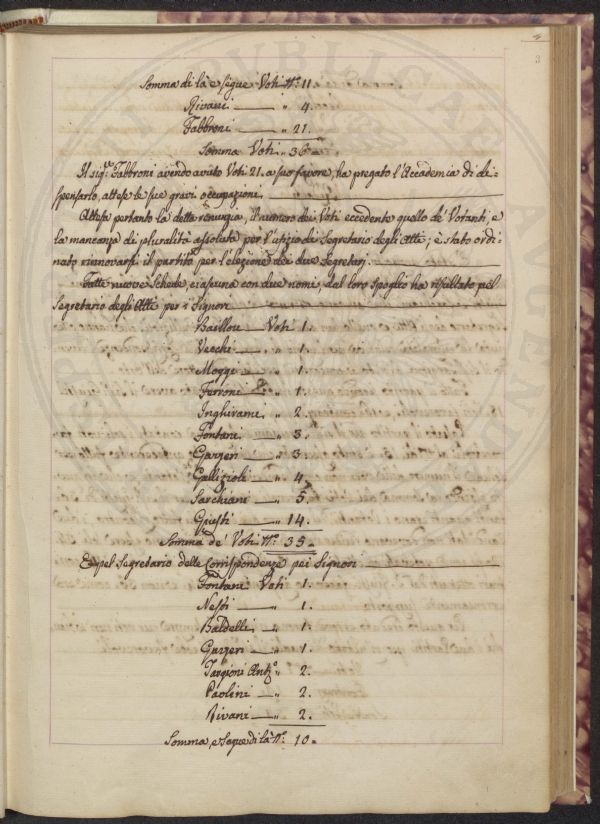 3
Somma di là e segue Voti N.º 11
Rivani — „ 4.
Fabbroni — „ 21.
Somma Voti „ 36 =
Il sig.ʳ Fabbroni avendo avuto Voti 21. a suo favore, ha pregato l'Accademia di di=
spensarlo, attese le sue gravi occupazioni.
Attesa pertanto la detta renunzia, il numero dei Voti eccedente quello de' Votanti, e
la mancanza di pluralità assoluta per l'ufizio di Segretario degli Atti; è stato ordi=
nato rinnovarsi il partito per l'elezione dei due Segretarj.
Fatte nuove Schede, ciascuna con due nomi, dal loro spoglio ha risultato pel
Segretario degli Atti per i Signori
Baillou — Voti 1.
Vecchi — „ 1.
Moggi — „ 1.
Ferroni — „ 1.
Inghirami „ 2.
Fontani — „ 3.
Gazzeri — „ 3
Gallizioli — „ 4.
Sarchiani — „ 5.
Giusti — „ 14.
Somma de' Voti N.º 35 =
E pel Segretario delle Corrispondenze pei Signori
Fontani Voti 1.
Nesti — „ 1.
Baldelli — „ 1.
Gazzeri — „ 1.
Targioni Ant.º „ 2.
Paolini — „ 2.
Rivani — „ 2.
Somma, e segue di là N.º 10 =